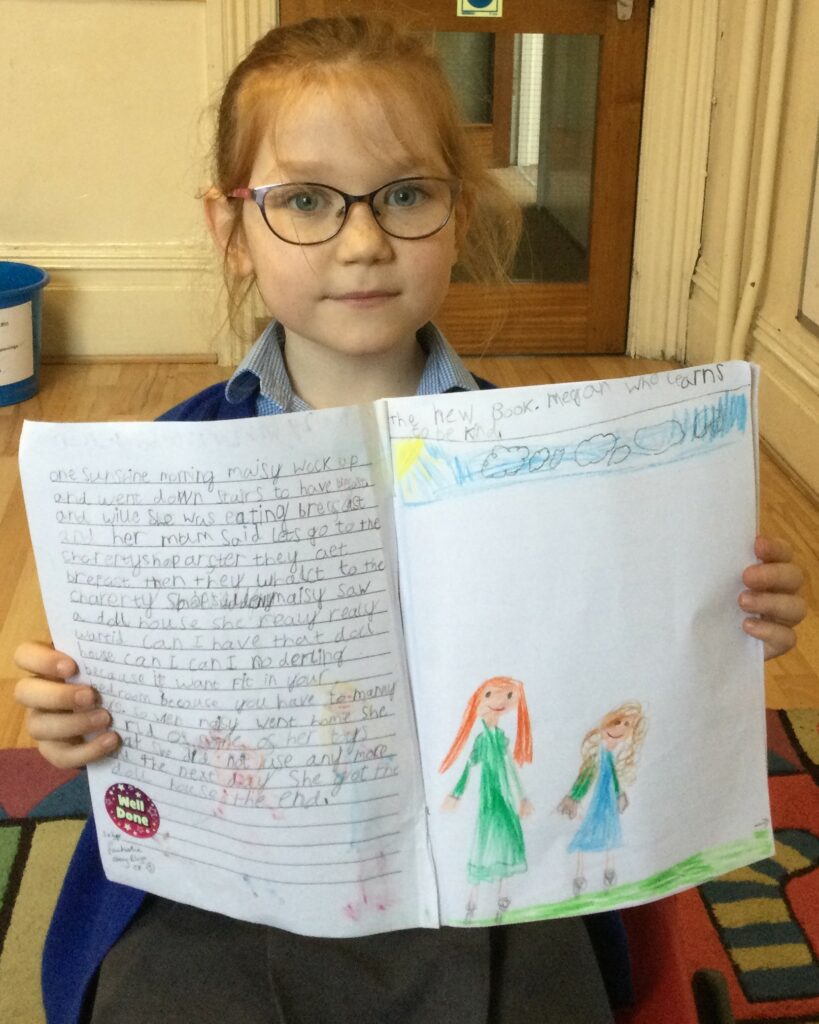 one sunshine morning maisy wock up
and went down stairs to have
and wiue she was eating brecast
and her mum said lets go to the
charertyshop arster they aet
brefast then they whalct to the
charerty maisy saw
a doll house she realy realy
can I have that doll
house can I can I no derling
because it want fit in your
bedroom because you have to manny
so wen maisy went home she
rid of some of her toys
she did not use any more
the next day she got the
doll house the end.
Well
Done
the new Book. megan who learns
to be kind.